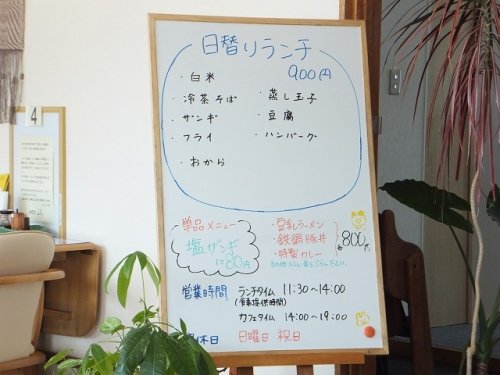 日替りランチ
900円
・白米
・冷茶そば
・蒸し玉子
・ザンギ
・豆腐
・フライ
・ハンバーグ
・おから
単品メニュー
塩ザンギ
1つ80円
・豆乳ラーメン
・鉄鍋豚丼
・特製カレー
各800円
営業時間 ランチタイム 11:30～14:00
(食事提供時間)
カフェタイム 14:00～19:00
休日 日曜日 祝日
4